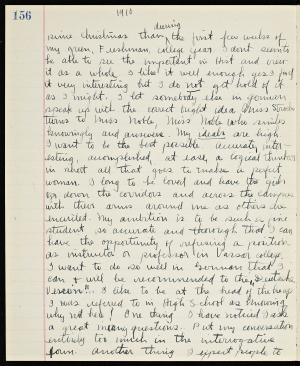 156
1910
during
since Christmas than the first few weeks of
my green, Freshman, college year. I don't seem to
be able to see the important in Hist and view
it as a whole. I like it well enough, yes I find
it very interesting but I do not get hold of it
as I might. I let somebody else in German
speak up with the correct bright idea Miss
turns to Miss Noble. Miss Noble who smiles
knowingly and answers. My ideals are high
I want to be the best possible accurate, inter-
esting, accomplished, at ease, a logical thinker
in short all that goes to make a perfect
woman. I long to be loved and have the girls
go down the corridors and across the campus
with their arms around me as others be
My ambition is to be such a fine
student, so accurate and thorough that I can
have the opportunity of refusing a position
as instructor or professor in Vassar college.
I want to do so well in German that I
can & will be recommended to the "Deutsche
Verein". I like to be at the head of the heap
I was referred to in High School as knowing
why not here! One thing I have noticed I ask
a great many questions. Put my conversation
entirely too much in the interrogative
form. Another thing I expect people to